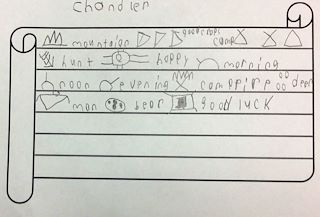 Chandler
mountaion good crops camp
hunt happy morning
noon evening campfire deer
man bear good luck